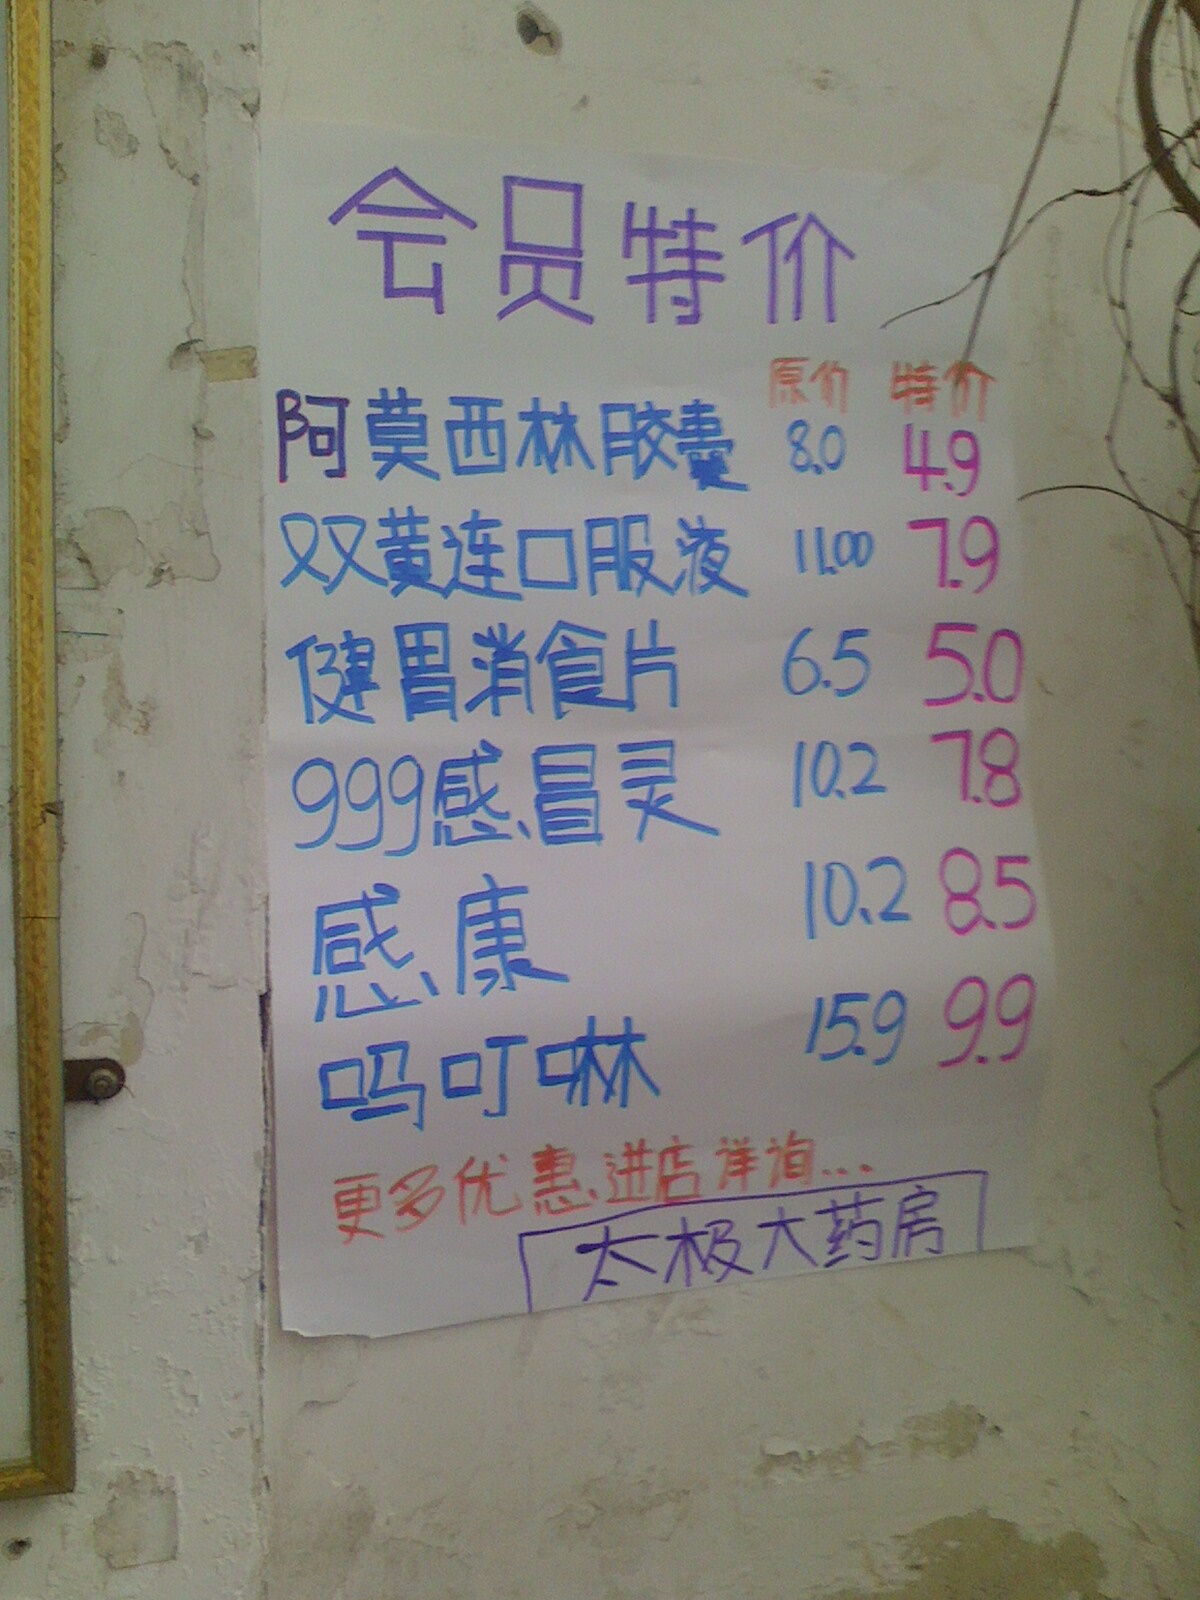 会员特价
原价 特价
阿莫西林胶囊 8.0 4.9
双黄连口服液 11.00 7.9
健胃消食片 6.5 5.0
999感冒灵 10.2 7.8
感康 10.2 8.5
吗叮啉 15.9 9.9
更多优惠进店详询...
太极大药房